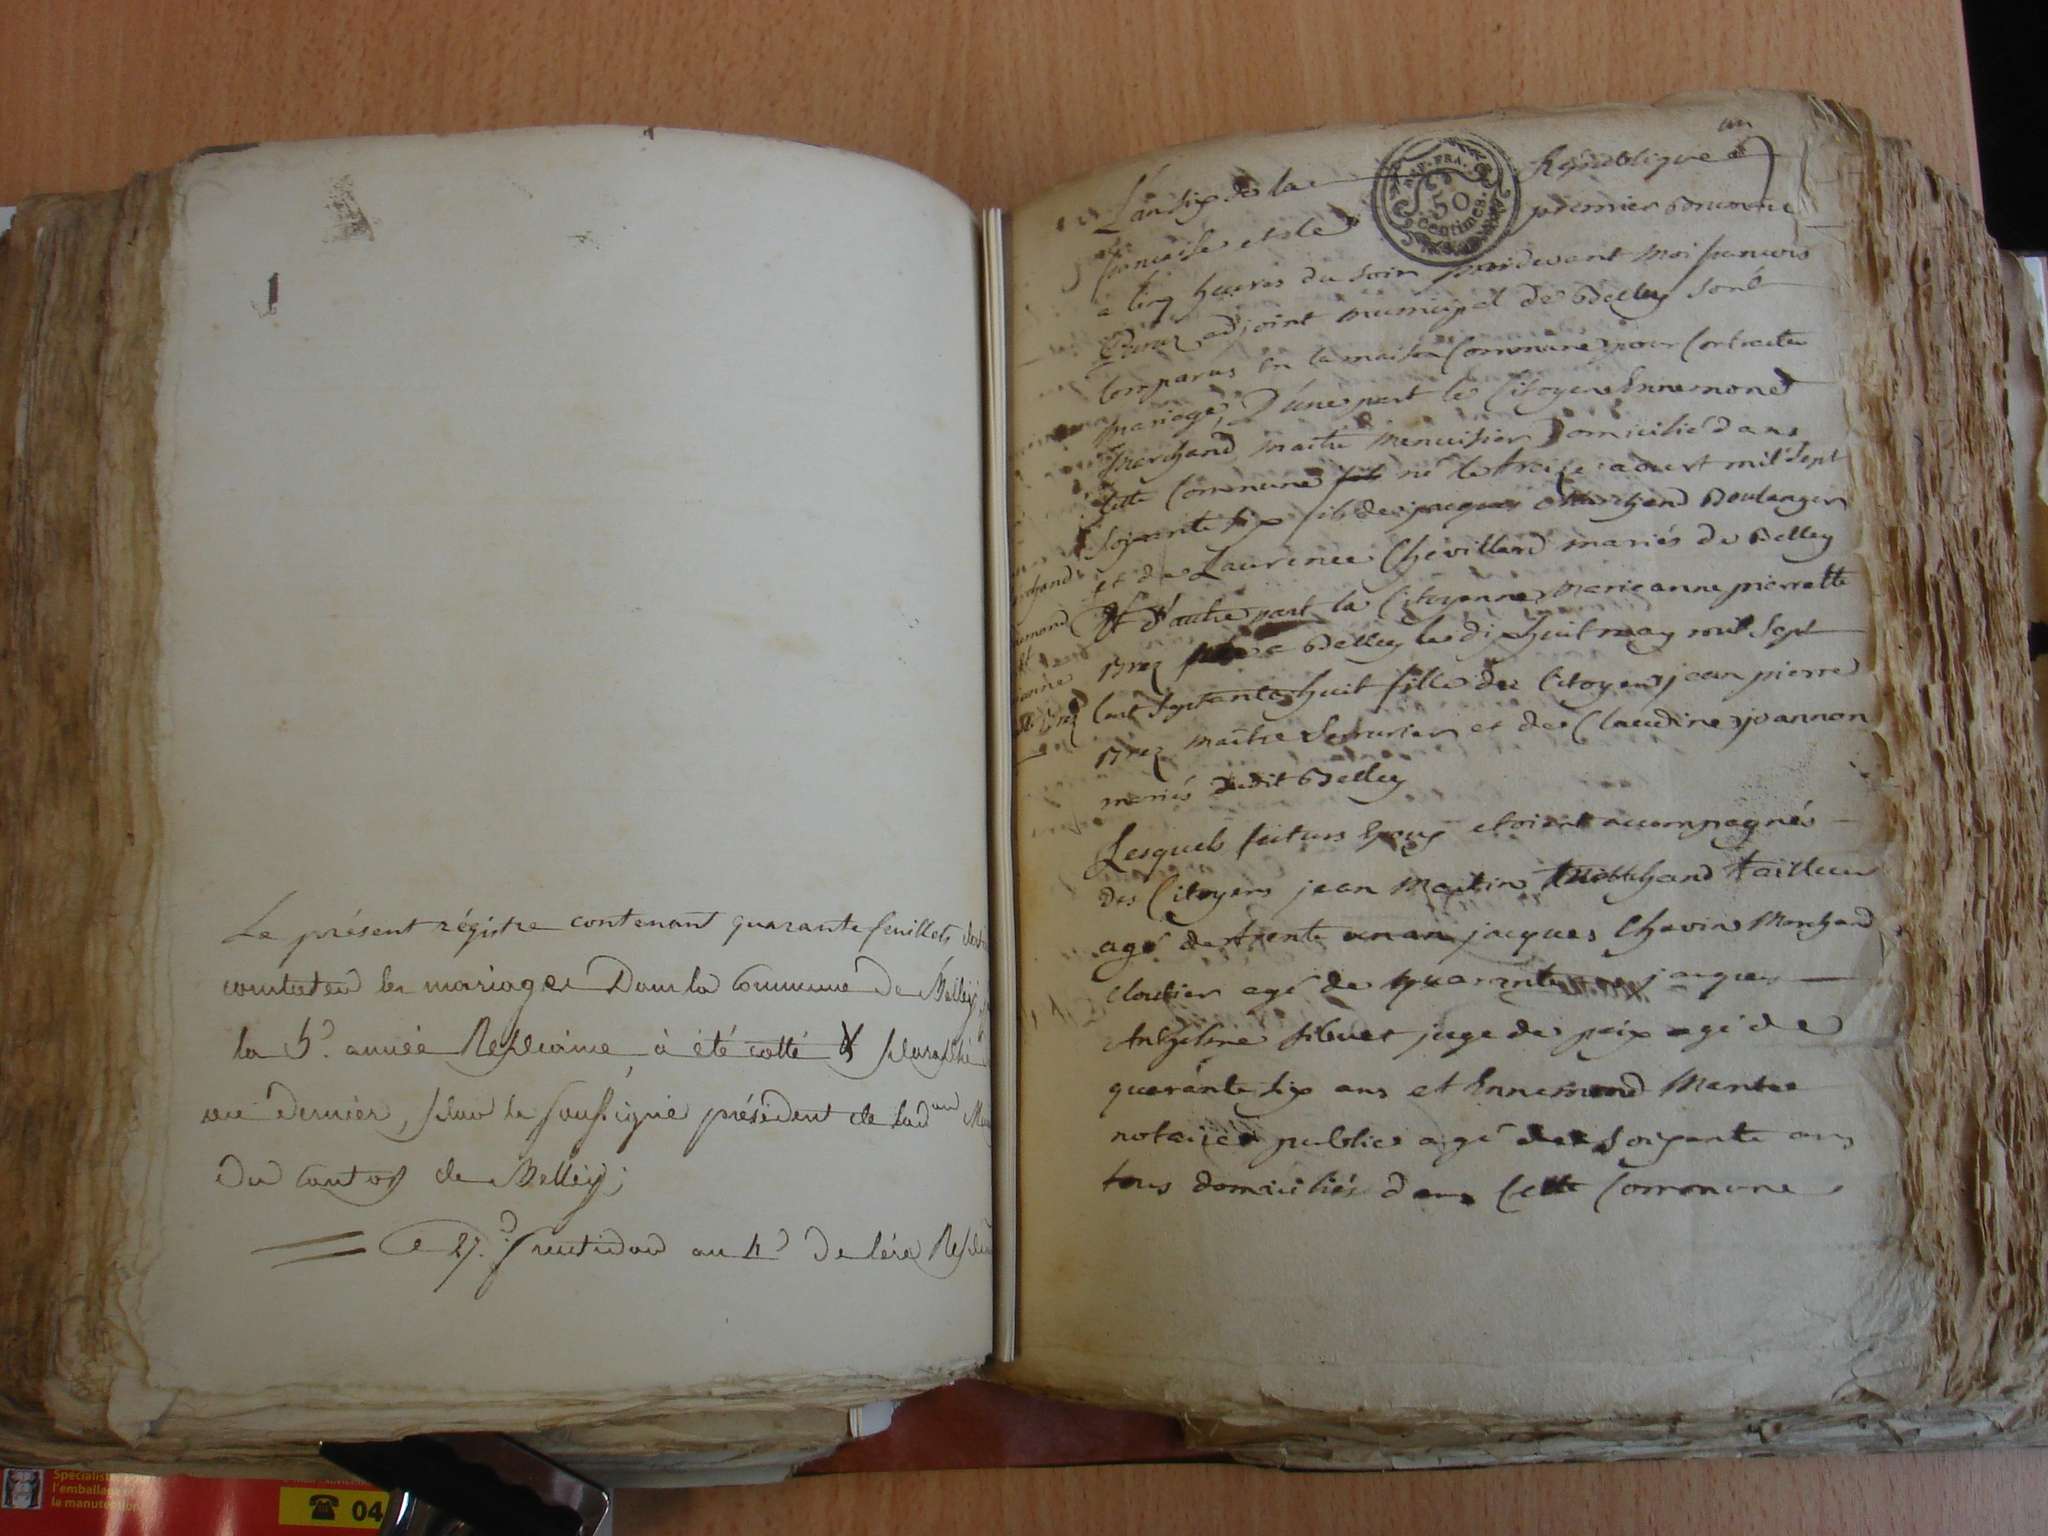 Le présent régistre contenant quarante feuillets
constater les mariages Dans la Commune de Belley
la 5e. année Repcaine à été cotté & paraphé
dernier, par le soussigné président de lad
Du canton de Belley;
Ce 27. fructidor an 4 De l'ère
un
L'an six de la République
francaise et le premier Brumaire
a cinq heures du soir pardevant moi francois
adjoint municipal de Belley sont
comparus en la maison Commune pour Contracter
mariage, D'une part le Citoyen Ennemond
Marchand maitre menuisier Domicilié dans
cette Commune né le treise aoust mil sept
soixante six fils de jacques Marchand Boulanger
et de Laurence Chevillard mariés de Belley
Et d'autre part la Citoyenne marieanne pierrette
Brez a Belley le dix huit may mil sept
cent septante huit fille du Citoyen jean pierre
Brez maitre serrurier et de Claudine joannon
mariés dudit Belley
Lesquels futurs Epoux etoient accompagnés
des Citoyens jean Martin tailleur
agé de trente un an jacques Chevin Marchand
cloutier agé de quarante jacques
Anthelme sibuet juge de paix agé de
quarante six ans et Ennemond
notaire public agé de soixante ans
tous domiciliés dans Cette Commune
REP. FRA.
50
centimes
Spécialiste
l'emballage
la manutention
04